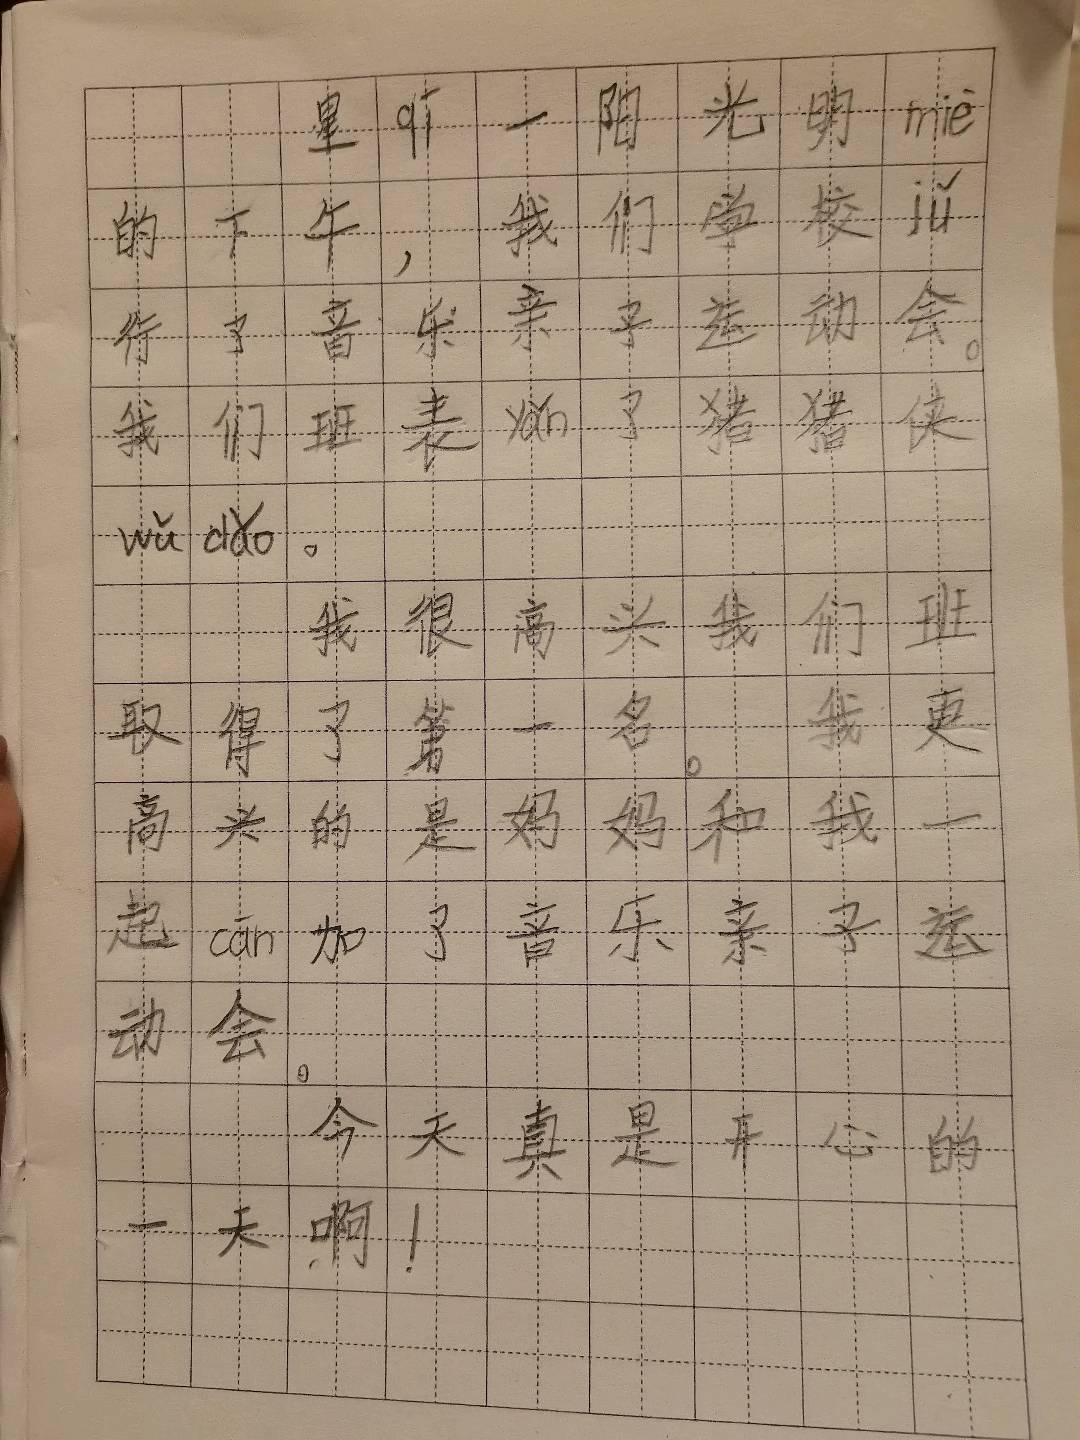 星qī一阳光明miè
的下午，我们学校jǔ
行了音乐亲子运动会。
我们班表yǎn了猪猪侠
wǔdǎo。
我很高兴我们班
取得了第一名。我更
高兴的是妈妈和我一
起cān加了音乐亲子运
动会。
今天真是开心的
一天啊！